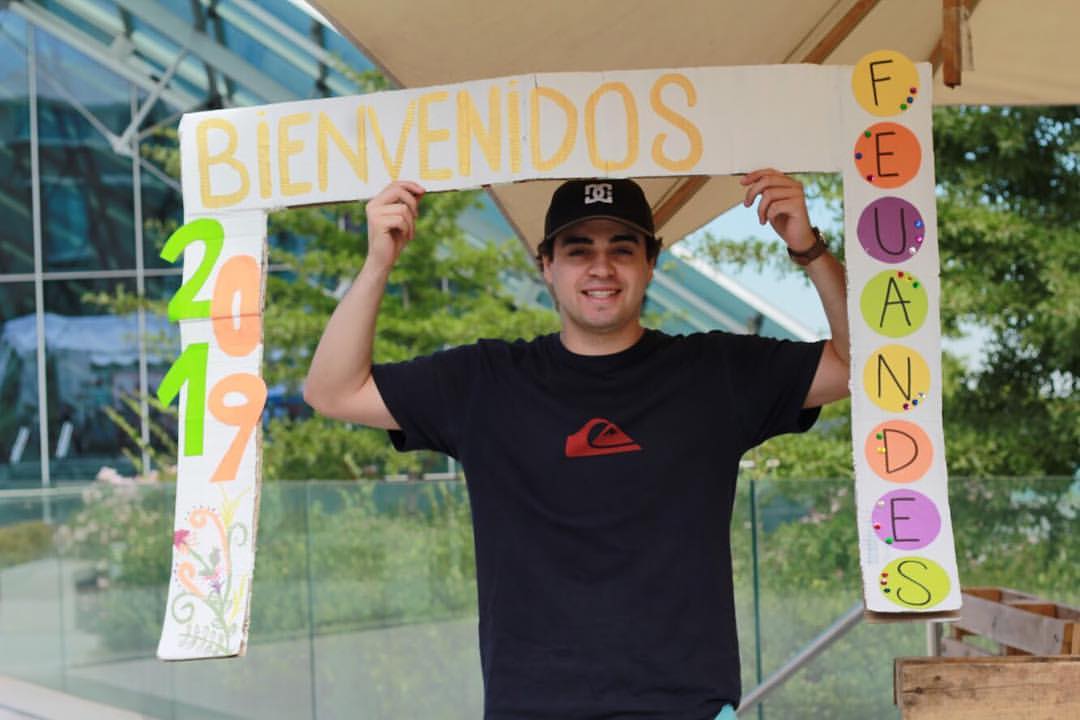 BiENVENiDOS
2019
FEUANDES
DC